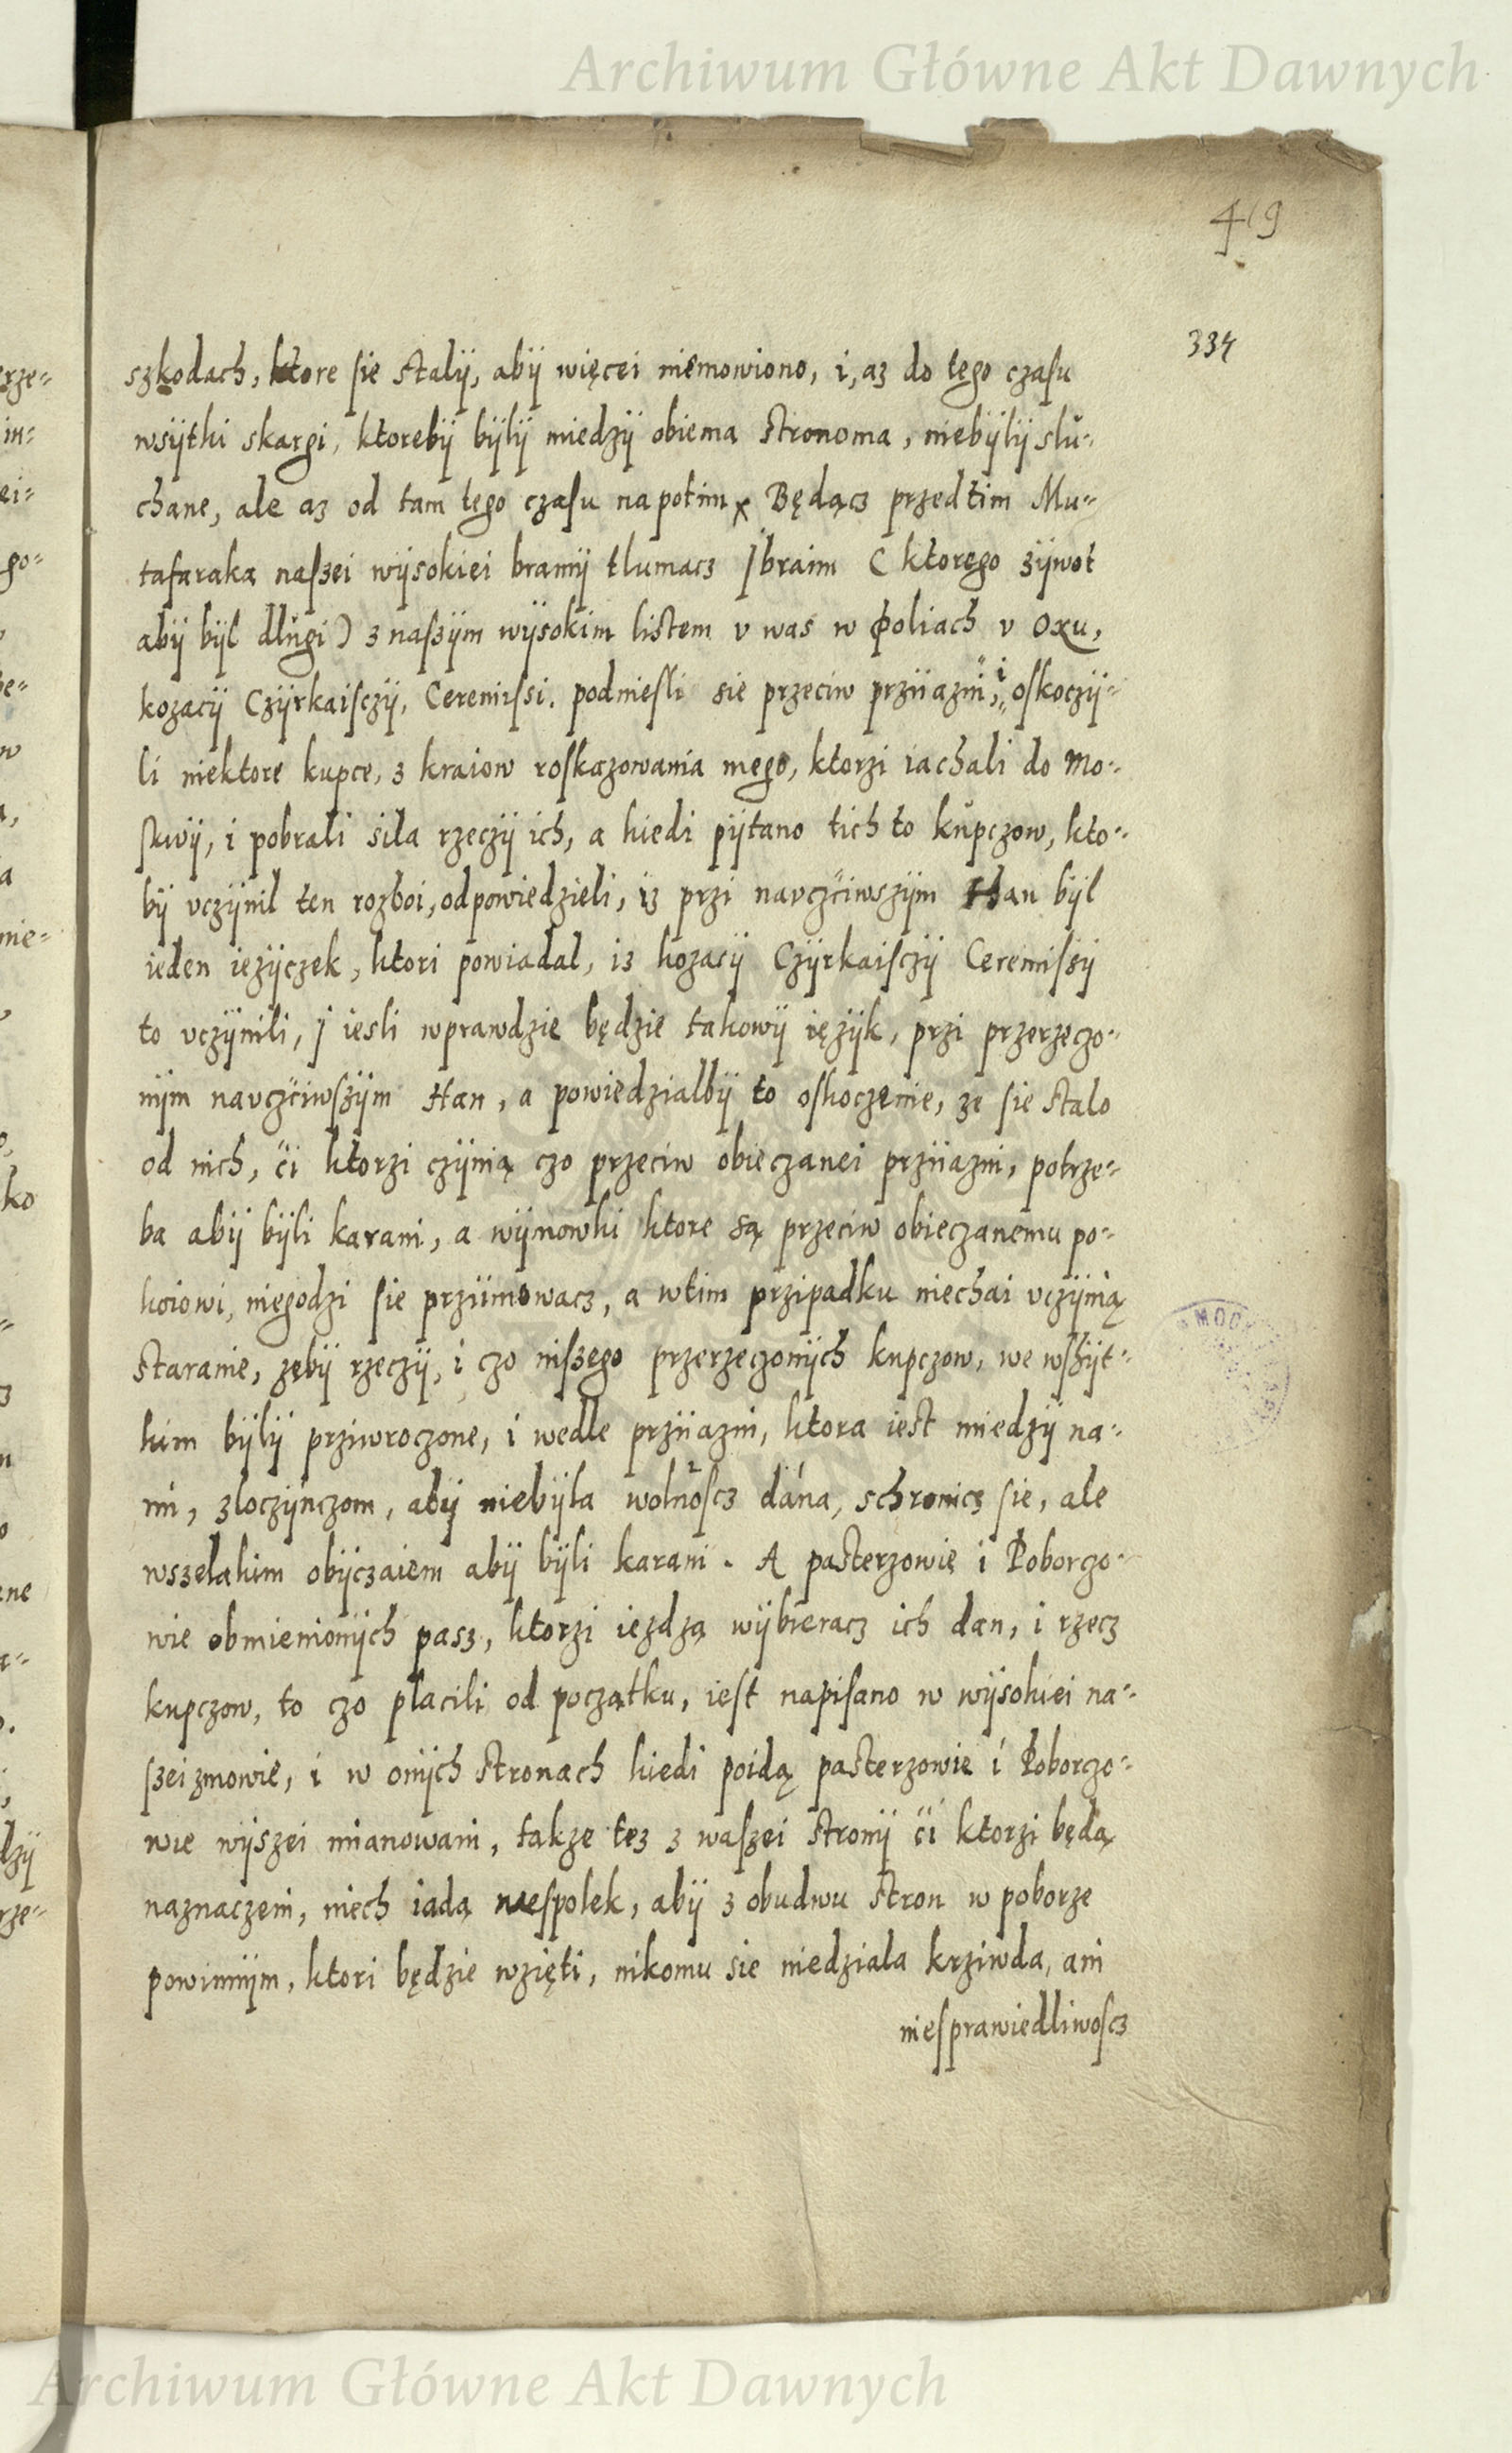 Archiwum Główne Akt Dawnych
419
334
szkodach, ktore sie stalÿ, abÿ więcei niemowiono, i, az do tego czasu
wsÿtki skargi, ktorebÿ bÿlÿ miedzÿ obiema stronoma, niebÿlÿ slu-
chane, ale az od tam tego czasu napotim x Będącz przedtim Mu-
tafaraka naszei wÿsokiei bramÿ tlumacz Jbraim ( ktorego zÿwot
abÿ bÿl dlugi ) z naszÿm wÿsokim listem v was w Poliach v Oxu,
kozacÿ Czÿrkaisczÿ, Ceremissi. podniesli sie przeciw prziiazni, i oskoczÿ-
li niektore kupce, z kraiow roskazowania mego, ktorzi iachali do Mo-
skwÿ, i pobrali sila rzeczÿ ich, a kiedi pÿtano tich to kupczow, kto-
bÿ vczÿnil ten rozboi, odpowiedzieli, iz przi navczciwszÿm Han bÿl
ieden ięzÿczek, ktori powiadal, iz kozacÿ Czÿrkaisczÿ Ceremissÿ
to vczÿnili, j iesli wprawdzie będzie takowÿ ięzÿk, przi przerzeczo-
nÿm navczciwszÿm Han, a powiedzialbÿ to oskoczenie, ze sie stalo
od nich, ci ktorzi czÿnią czo przeciw obieczanei prziiazni, potrze-
ba abÿ bÿli karani, a wÿmowki ktore są przeciw obieczanemu po-
koiowi, niegodzi sie prziimowacz, a wtim przipadku niechai vczÿnią
staranie, zębÿ rzeczÿ, i czo inszego przerzeczonÿch kupczow, we wszÿt-
kim bÿlÿ prziwroczone, i wedle prziiazni, ktora iest miedzÿ na-
mi, zloczÿnczom, abÿ niebÿla wolnoscz dana, schronicz sie, ale
wszelakim obÿczaiem abÿ bÿli karani. A pasterzowie i Poborczo-
wie obmienionÿch pasz, ktorzi iezdzą wÿbieracz ich dan, i rzecz
kupczow, to czo placili od początku, iest napisano w wÿsokiei na-
szei zmowie, i w onÿch stronach kiedi poidą pasterzowie i Poborczo-
wie wÿszei mianowani, takze tez z waszei stronÿ ci ktorzi będą
naznaczeni, niech iadą wespolek, abÿ z obudwu stron w poborze
powinnÿm, ktori będzie wzięti, nikomu sie niedziala krziwda, ani
niesprawiedliwoscz
Archiwum Główne Akt Dawnych